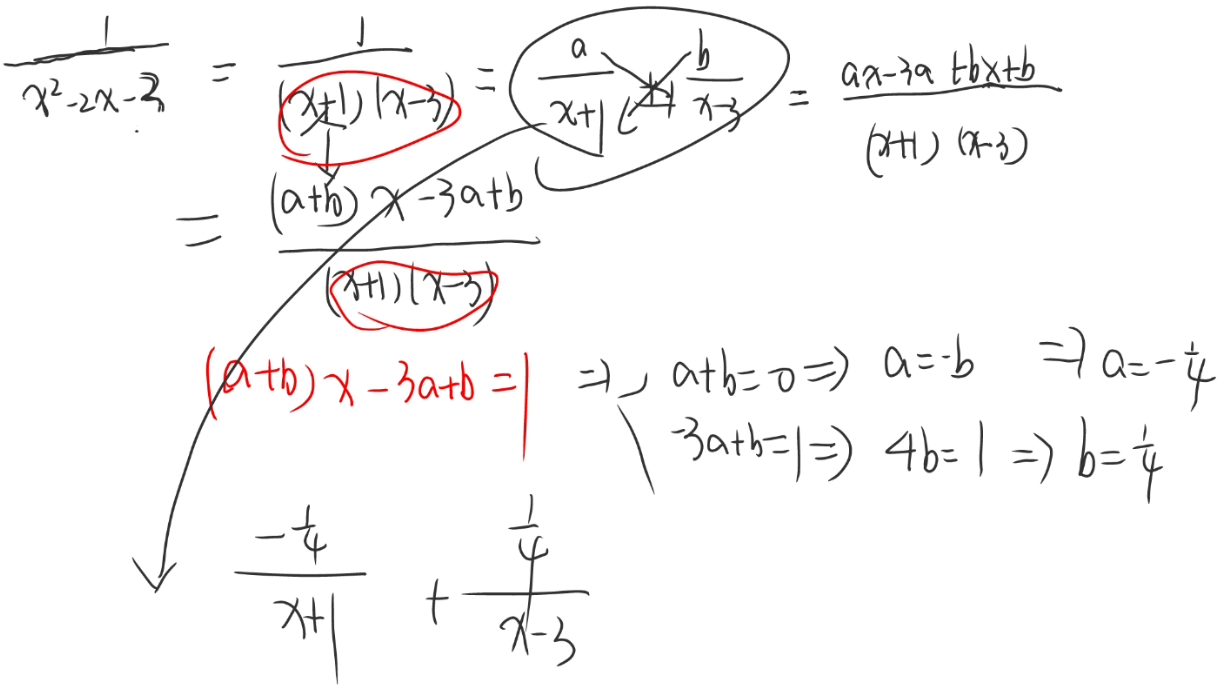 1/(x²-2x-3) = 1/((x+1)(x-3)) = a/(x+1) + b/(x-3) = (ax-3a+bx+b)/((x+1)(x-3))
= ((a+b)x-3a+b)/((x+1)(x-3))
(a+b)x-3a+b=1 ⇒ a+b=0 ⇒ a=-b ⇒ a=-1/4
-3a+b=1 ⇒ 4b=1 ⇒ b=1/4
(-1/4)/(x+1) + (1/4)/(x-3)